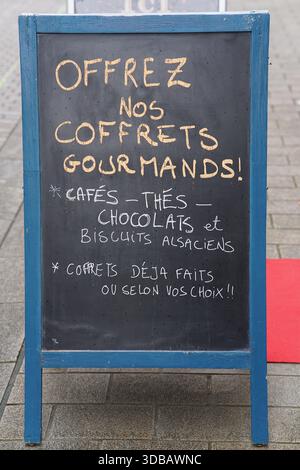 OFFREZ
NOS
COFFRETS
GOURMANDS!
* CAFÉS - THÉS -
CHOCOLATS et
BISCUITS ALSACIENS
* COFFRETS DÉJA FAITS
OU SELON VOS CHOIX!!
alamy
Image ID: 3DBAWNC
www.alamy.com